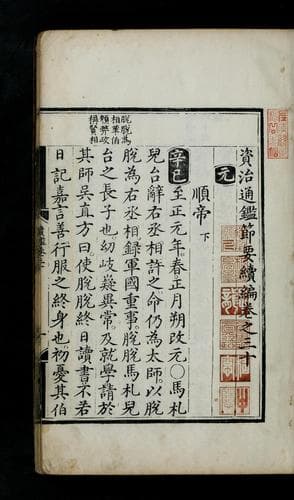 資治通鑑節要續編卷之三十
元
順帝 下
辛巳至正元年春正月朔改元○馬札
兒台辭右丞相許之命仍為太師以脫
脫為右丞相録軍國重事脫脫馬札兒
台之長子也幼岐嶷異常及就學請於
其師吳直方曰使脫脫終日讀書不若
日記嘉言善行服之終身也初憂其伯
脫脫為
相革伯
顔弊政
稱賢相